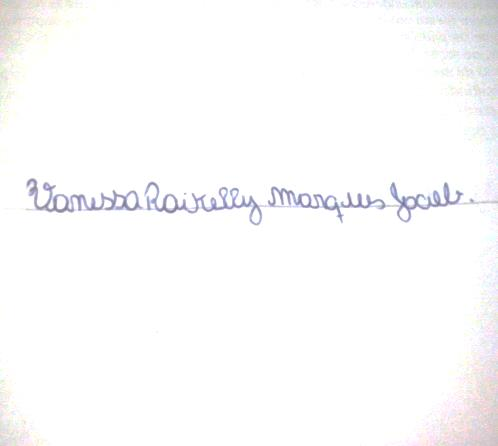 Vanessa Rairelly Marques Jacob.